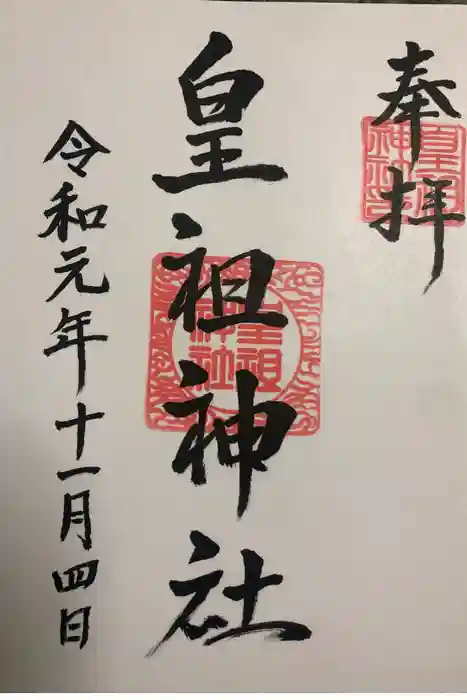 奉拝
皇祖神社
皇祖神社
皇祖神社
令和元年十一月四日